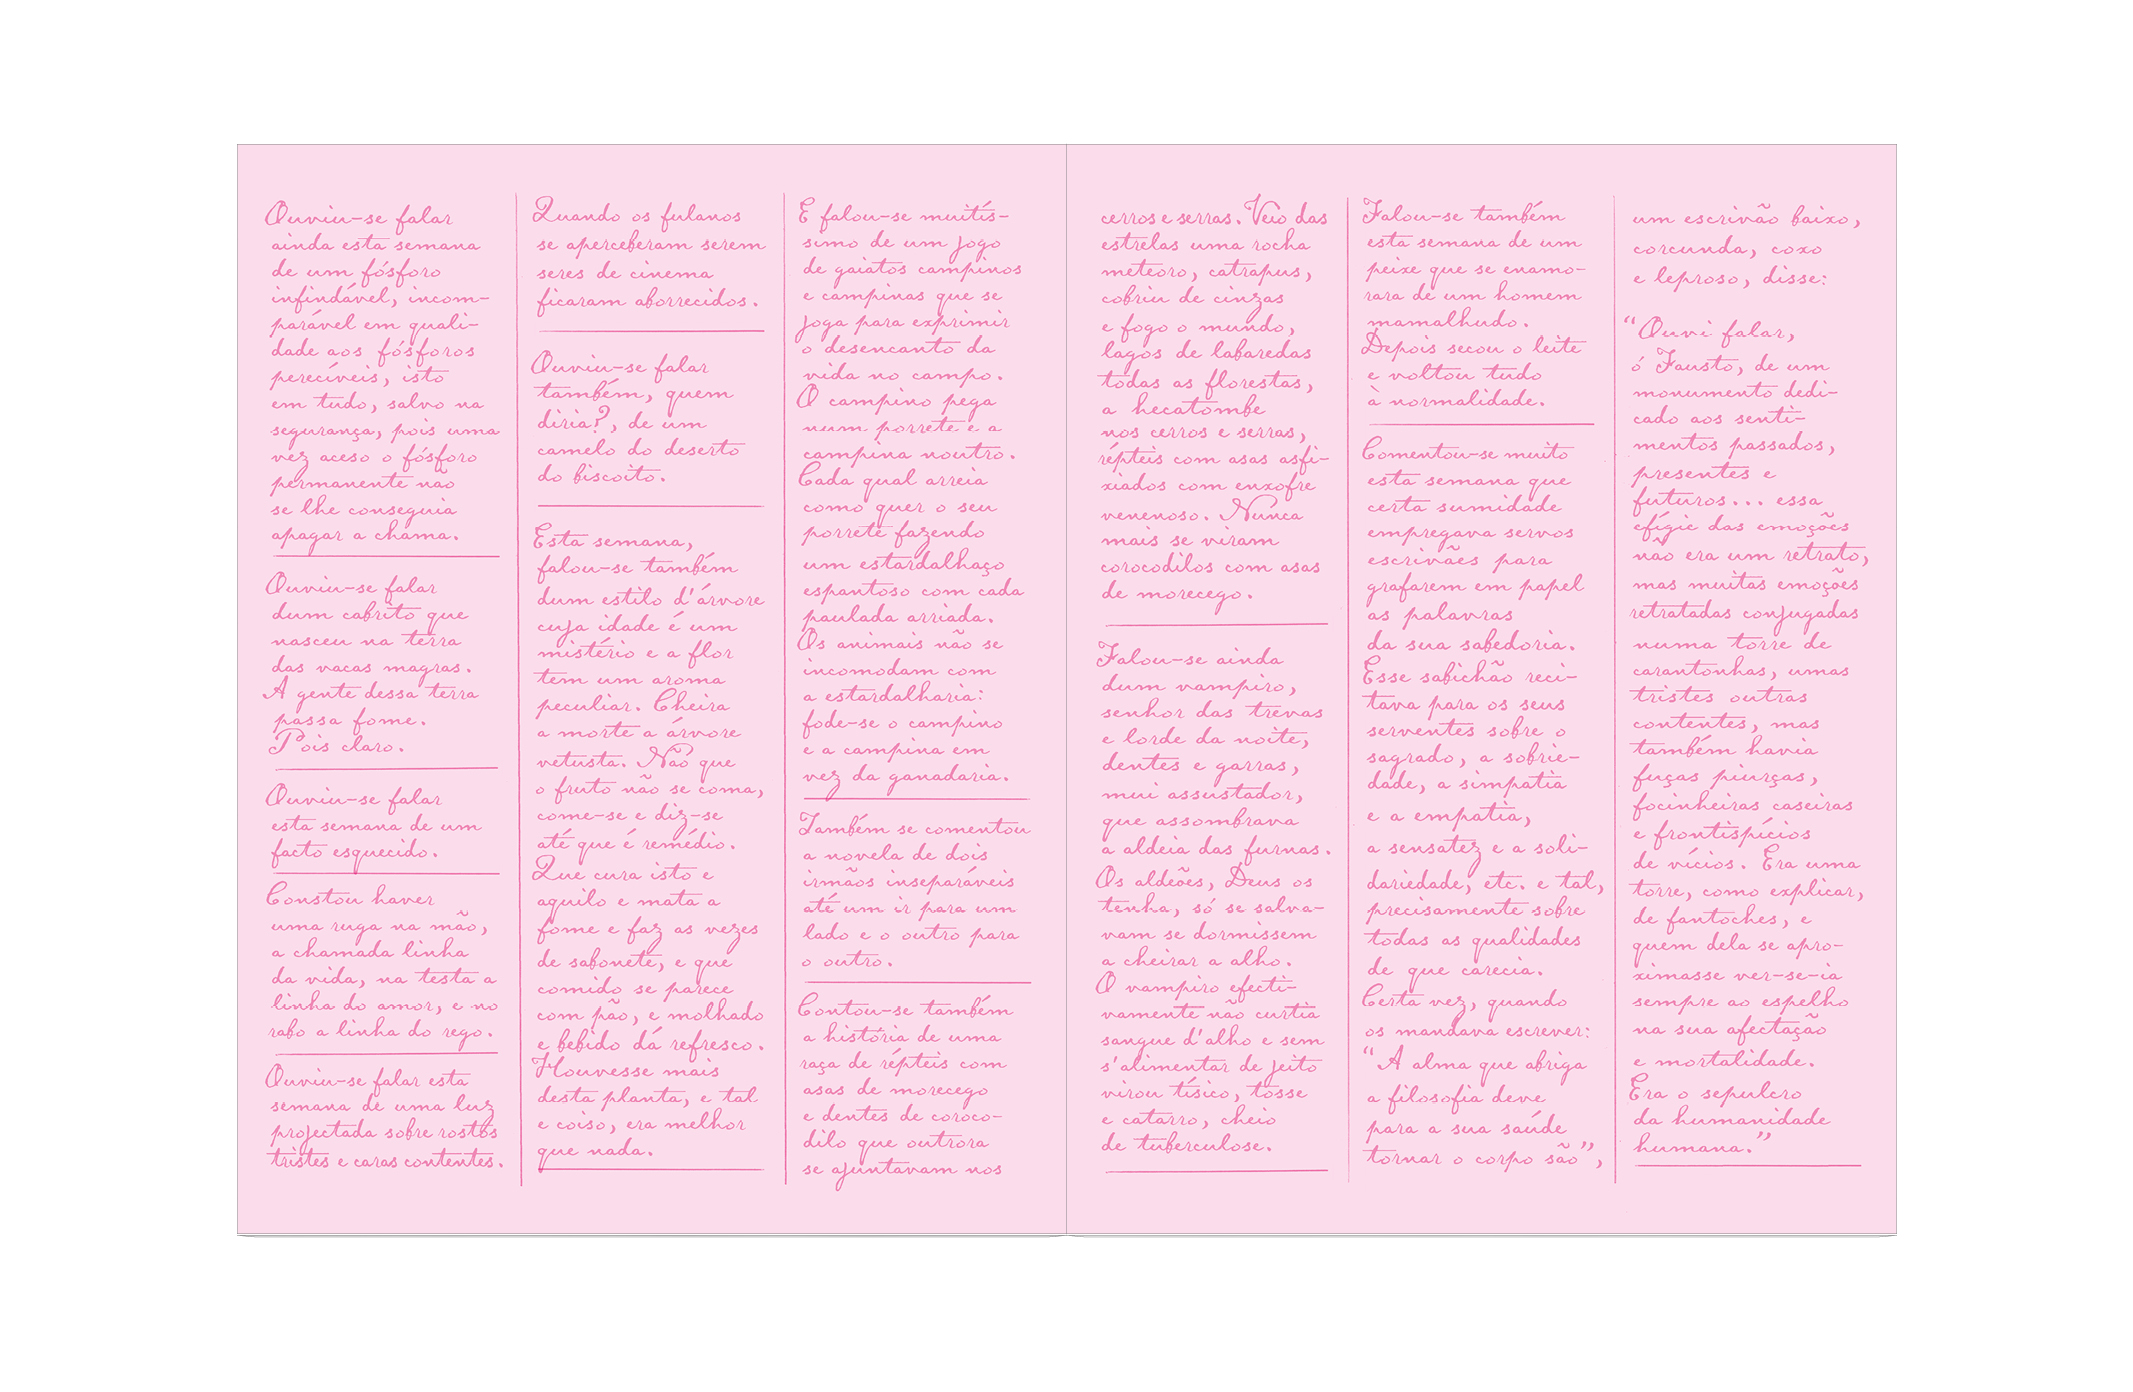 Ouviu-se falar
ainda esta semana
de um fósforo
infindável, incom-
parável em quali-
dade aos fósforos
perecíveis, isto
em tudo, salvo na
segurança, pois uma
vez aceso o fósforo
permanente não
se lhe conseguia
apagar a chama.
Ouviu-se falar
dum cabrito que
nasceu na terra
das vacas magras.
A gente dessa terra
passa fome.
Pois claro.
Ouviu-se falar
esta semana de um
facto esquecido.
Constou haver
uma ruga na mão,
a chamada linha
da vida, na testa a
linha do amor, e no
rabo a linha do rego.
Ouviu-se falar esta
semana de uma luz
projectada sobre rostos
tristes e caras contentes.
Quando os fulanos
se aperceberam serem
seres de cinema
ficaram aborrecidos.
Ouviu-se falar
também, quem
diria?, de um
camelo do deserto
do biscoito.
Esta semana,
falou-se também
dum estilo d'árvore
cuja idade é um
mistério e a flor
tem um aroma
peculiar. Cheira
a morte a árvore
vetusta. Não que
o fruto não se coma,
come-se e diz-se
até que é remédio.
Que cura isto e
aquilo e mata a
fome e faz as vezes
de sabonete, e que
comido se parece
com pão, e molhado
e bebido dá refresco.
Houvesse mais
desta planta, e tal
e coiso, era melhor
que nada.
E falou-se muitís-
simo de um jogo
de gaiatos campinos
e campinas que se
joga para exprimir
o desencanto da
vida no campo.
O campino pega
num porrete e a
campina noutro.
Cada qual arreia
como quer o seu
porrete fazendo
um estardalhaço
espantoso com cada
paulada arriada.
Os animais não se
incomodam com
a estardalharia:
fode-se o campino
e a campina em
vez da ganadaria.
Também se comentou
a novela de dois
irmãos inseparáveis
até um ir para um
lado e o outro para
o outro.
Contou-se também
a história de uma
raça de répteis com
asas de morecego
e dentes de coroco-
dilo que outrora
se ajuntavam nos
cerros e serras. Veio das
estrelas uma rocha
meteoro, catrapus,
cobriu de cinzas
e fogo o mundo,
lagos de labaredas
todas as florestas,
a hecatombe
nos cerros e serras,
répteis com asas asfi-
xiados com enxofre
venenoso. Nunca
mais se viram
corocodilos com asas
de morecego.
Falou-se ainda
dum vampiro,
senhor das trevas
e lorde da noite,
dentes e garras,
mui assustador,
que assombrava
a aldeia das furnas.
Os aldeões, Deus os
tenha, só se salva-
vam se dormissem
a cheirar a alho.
O vampiro efecti-
vamente não curtia
sangue d'alho e sem
s'alimentar de jeito
virou tísico, tosse
e catarro, cheio
de tuberculose.
Falou-se também
esta semana de um
peixe que se enamo-
rara de um homem
mamalhudo.
Depois secou o leite
e voltou tudo
à normalidade.
Comentou-se muito
esta semana que
certa sumidade
empregava servos
escrivães para
grafarem em papel
as palavras
da sua sabedoria.
Esse sabichão reci-
tava para os seus
serventes sobre o
sagrado, a sobrie-
dade, a simpatia
e a empatia,
a sensatez e a soli-
dariedade, etc. e tal,
precisamente sobre
todas as qualidades
de que carecia.
Certa vez, quando
os mandava escrever:
“A alma que abriga
a filosofia deve
para a sua saúde
tornar o corpo são”,
um escrivão baixo,
corcunda, coxo
e leproso, disse:
“Ouvi falar,
ó Fausto, de um
monumento dedi-
cado aos senti-
mentos passados,
presentes e
futuros... essa
efígie das emoções
não era um retrato,
mas muitas emoções
retratadas conjugadas
numa torre de
carantonhas, umas
tristes outras
contentes, mas
também havia
fuças piurças,
focinheiras caseiras
e frontispícios
de vícios. Era uma
torre, como explicar,
de fantoches, e
quem dela se apro-
ximasse ver-se-ia
sempre ao espelho
na sua afectação
e mortalidade.
Era o sepulcro
da humanidade
humana.”